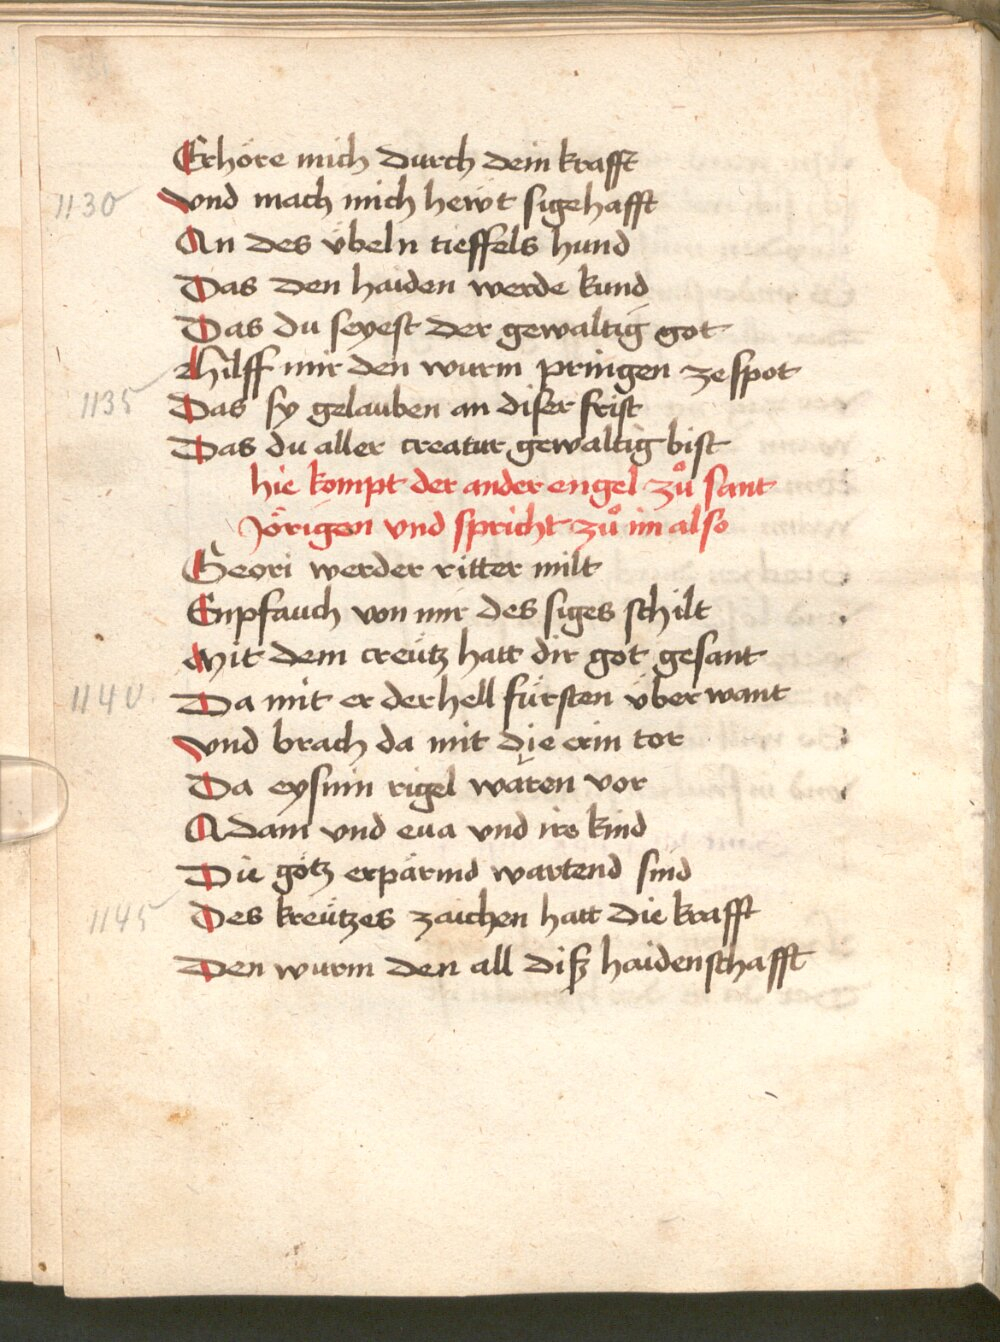 Erhöre mich durch dein krafft
1130 vnd mach mich hewt sigehafft
An des v̈beln tieffels hund
Das den haiden werde kund
Das du seyest der gewaltig got
Hilff mir den wurm pringen ze spot
1135 Das sy gelauben an diser frist
Das du aller creatur gewaltig bist
hie kompt der ander engel zů sant
Jörigen vnd spricht zů im also
Geori werder ritter milt
Enpfauch von mir des siges schilt
Mit dem creütz hatt dir got gesant
1140. Da mit er der hell fürsten v̈ber want
vnd brach da mit die erin tor
Da eysnin rigel wären vor
Adam vnd eua vnd ire kind
Die götz erpärmd wartend sind
1145 Des kreützes zaichen hatt die krafft
Den wurm den all diß haidenschafft